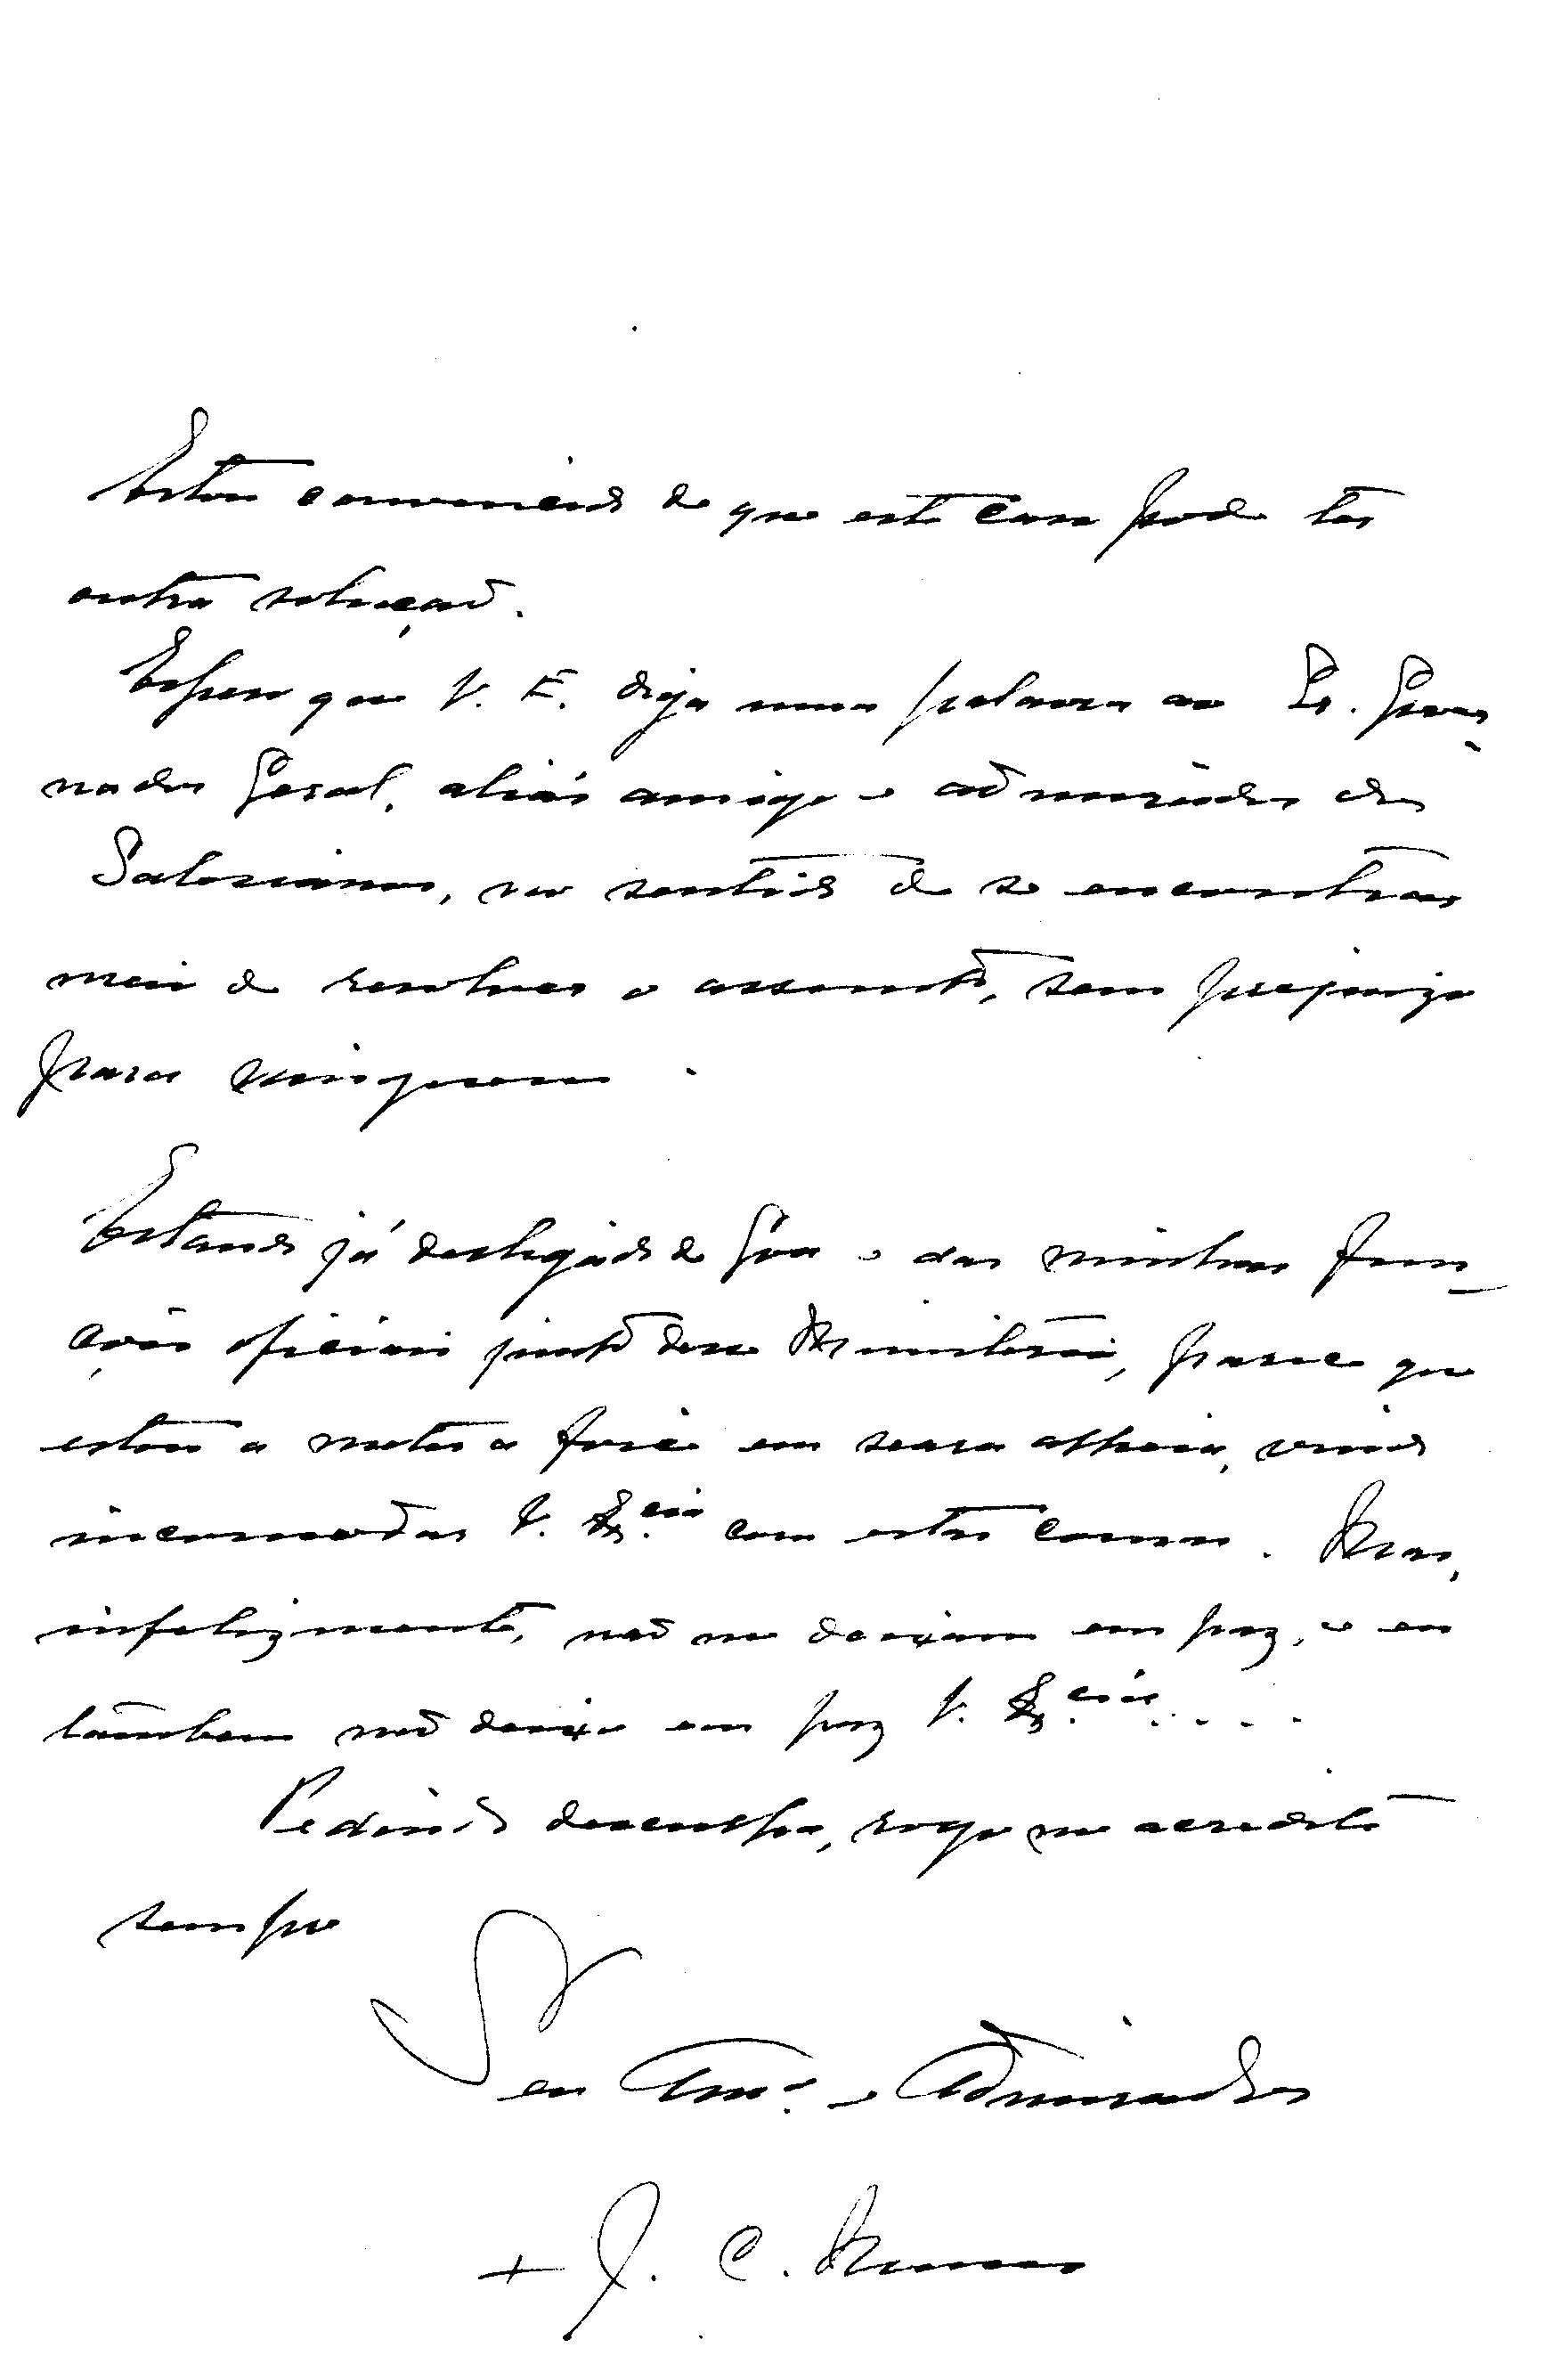 Estou convencido de que este caso pode ter
outra solução.
Espero que V. E. diga uma palavra ao Sr. Gover-
nador Geral, aliás amigo e admirador dos
Salesianos, no sentido de se encontrar
meio de resolver o assunto, sem prejuizo
para ninguem.
Estando já desligado de Goa e das minhas fun-
ções oficiais junto desse Ministério, parece que
estou a meter a foice em seara alheia, vindo
incomodar V. Ex.cia com estas cousas. Mas,
infelizmente, não me deixam em paz, e eu
tambem não deixo em paz V. Ex.cia.....
Pedindo desculpa, rogo me acredite
sempre
Seu Am.º e Admirador
+ J. C. Nunes